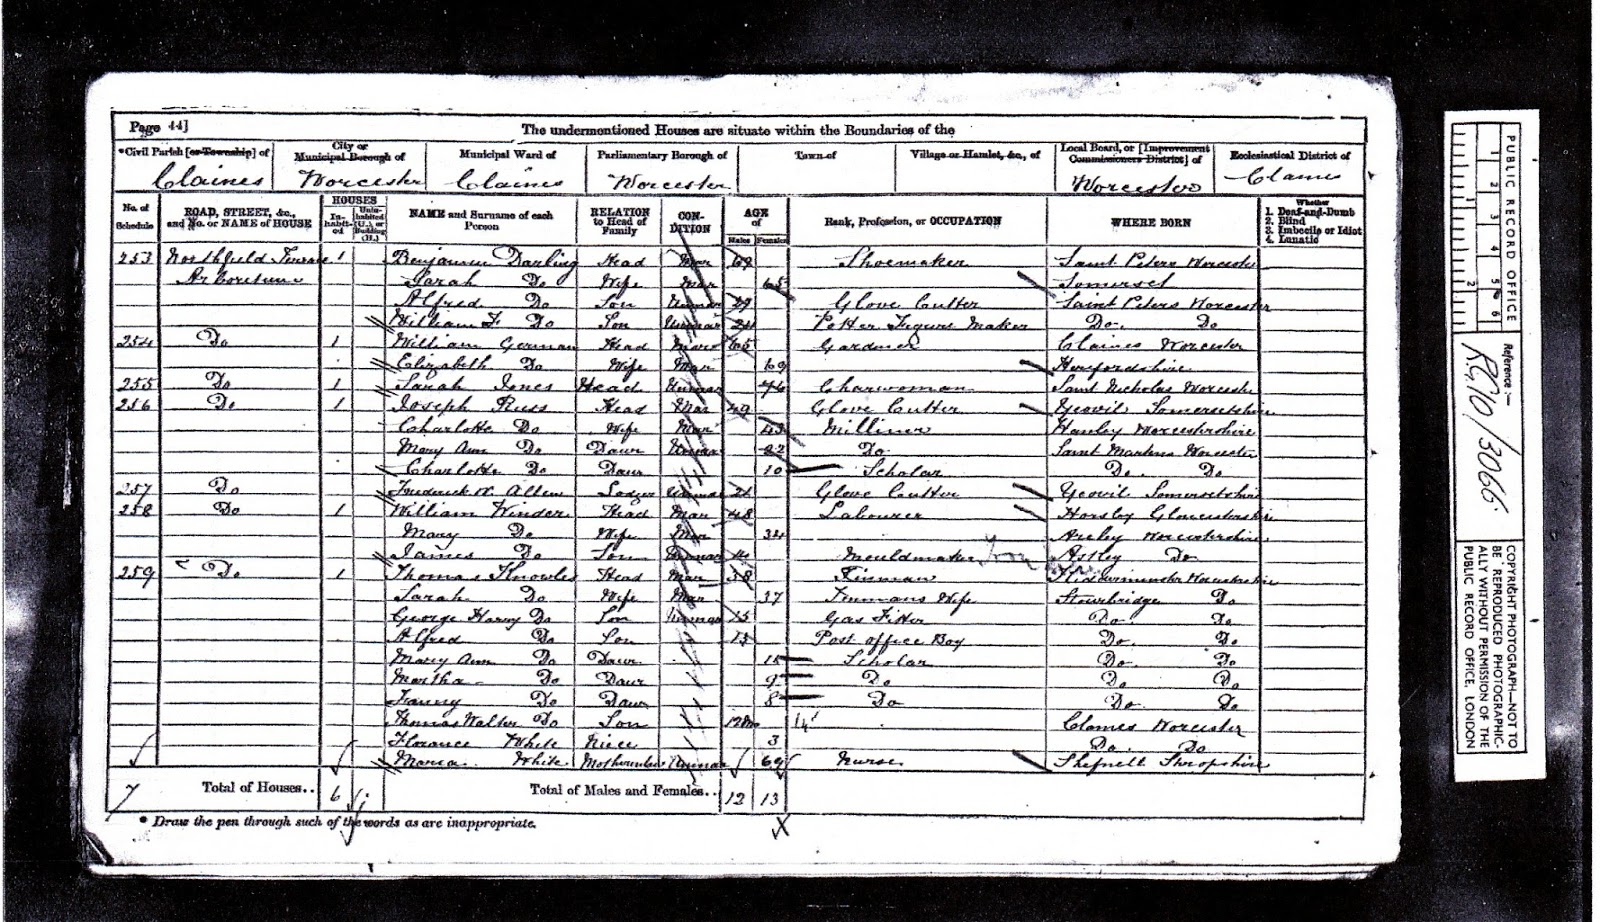 Page 44]
The undermentioned Houses are situate within the Boundaries of the
*Civil Parish [or Township] of
City or Municipal Borough of
Municipal Ward of
Parliamentary Borough of
Town of
Village or Hamlet, &c., of
Local Board, or [Improvement Commissioners District] of
Ecclesiastical District of
Claines Worcester Claines Worcester Worcester Claines
No. of Schedule
ROAD, STREET, &c., and No. or NAME of HOUSE
HOUSES
In-habit-ed
Unin-habited (U.) or Building (B.)
NAME and Surname of each Person
RELATION to Head of Family
CON-DITION
AGE of
Males Females
Rank, Profession, or OCCUPATION
WHERE BORN
Whether
1. Deaf-and-Dumb
2. Blind
3. Imbecile or Idiot
4. Lunatic
253 Northfield Terrace 1 Benjamin Darling Head Mar 69 Shoemaker Saint Peters Worcester
Arboretum Sarah Do Wife Mar 65 Somerset
Alfred Do Son Unmar 29 Glove Cutter Saint Peters Worcester
William F Do Son Unmar 21 Potter Figure Maker Do. Do
254 Do 1 William German Head Mar 65 Gardner Claines Worcester
Elizabeth Do Wife Mar 69 Herefordshire
255 Do 1 Sarah Jones Head Unmar 74 Charwoman Saint Nicholas Worcester
256 Do 1 Joseph Russ Head Mar 49 Glove Cutter Yeovil Somersetshire
Charlotte Do Wife Mar 43 Milliner Hanley Worcestershire
Mary Ann Do Daur Unmar 22 Do Saint Martins Worcester
Charlotte Do Daur 10 Scholar Do. Do
257 Do Frederick W Allen Lodger Unmar 21 Glove Cutter Yeovil Somersetshire
258 Do 1 William Winder Head Mar 48 Labourer Horsley Gloucestershire
Mary Do Wife Mar 34 Areley Worcestershire
James Do Son Unmar 14 Mouldmaker Iron Astley Do
259 Do 1 Thomas Knowles Head Mar 38 Tinman Kidderminster Worcestershire
Sarah Do Wife Mar 37 Tinmans Wife Stourbridge Do
George Harry Do Son Unmar 15 Gas Fitter Do. Do
Alfred Do Son 13 Post office Boy Do. Do
Mary Ann Do Daur Scholar Do. Do
Martha Do Daur 9 Do Do Do
Fanny Do Daur 8 Do Do. Do
Thomas Walter Do Son 12m Claines Worcester
Florance White Niece 3 Do. Do
Maria White Motherinlaw Unmar 69 Nurse Shifnell Shropshire
7 Total of Houses.. 6 Total of Males and Females.. 12 13
* Draw the pen through such of the words as are inappropriate.
PUBLIC RECORD OFFICE
1 2 3 4 5 6
1 2
Reference:-
RG10/3066
COPYRIGHT PHOTOGRAPH—NOT TO BE REPRODUCED PHOTOGRAPHICALLY WITHOUT PERMISSION OF THE PUBLIC RECORD OFFICE, LONDON